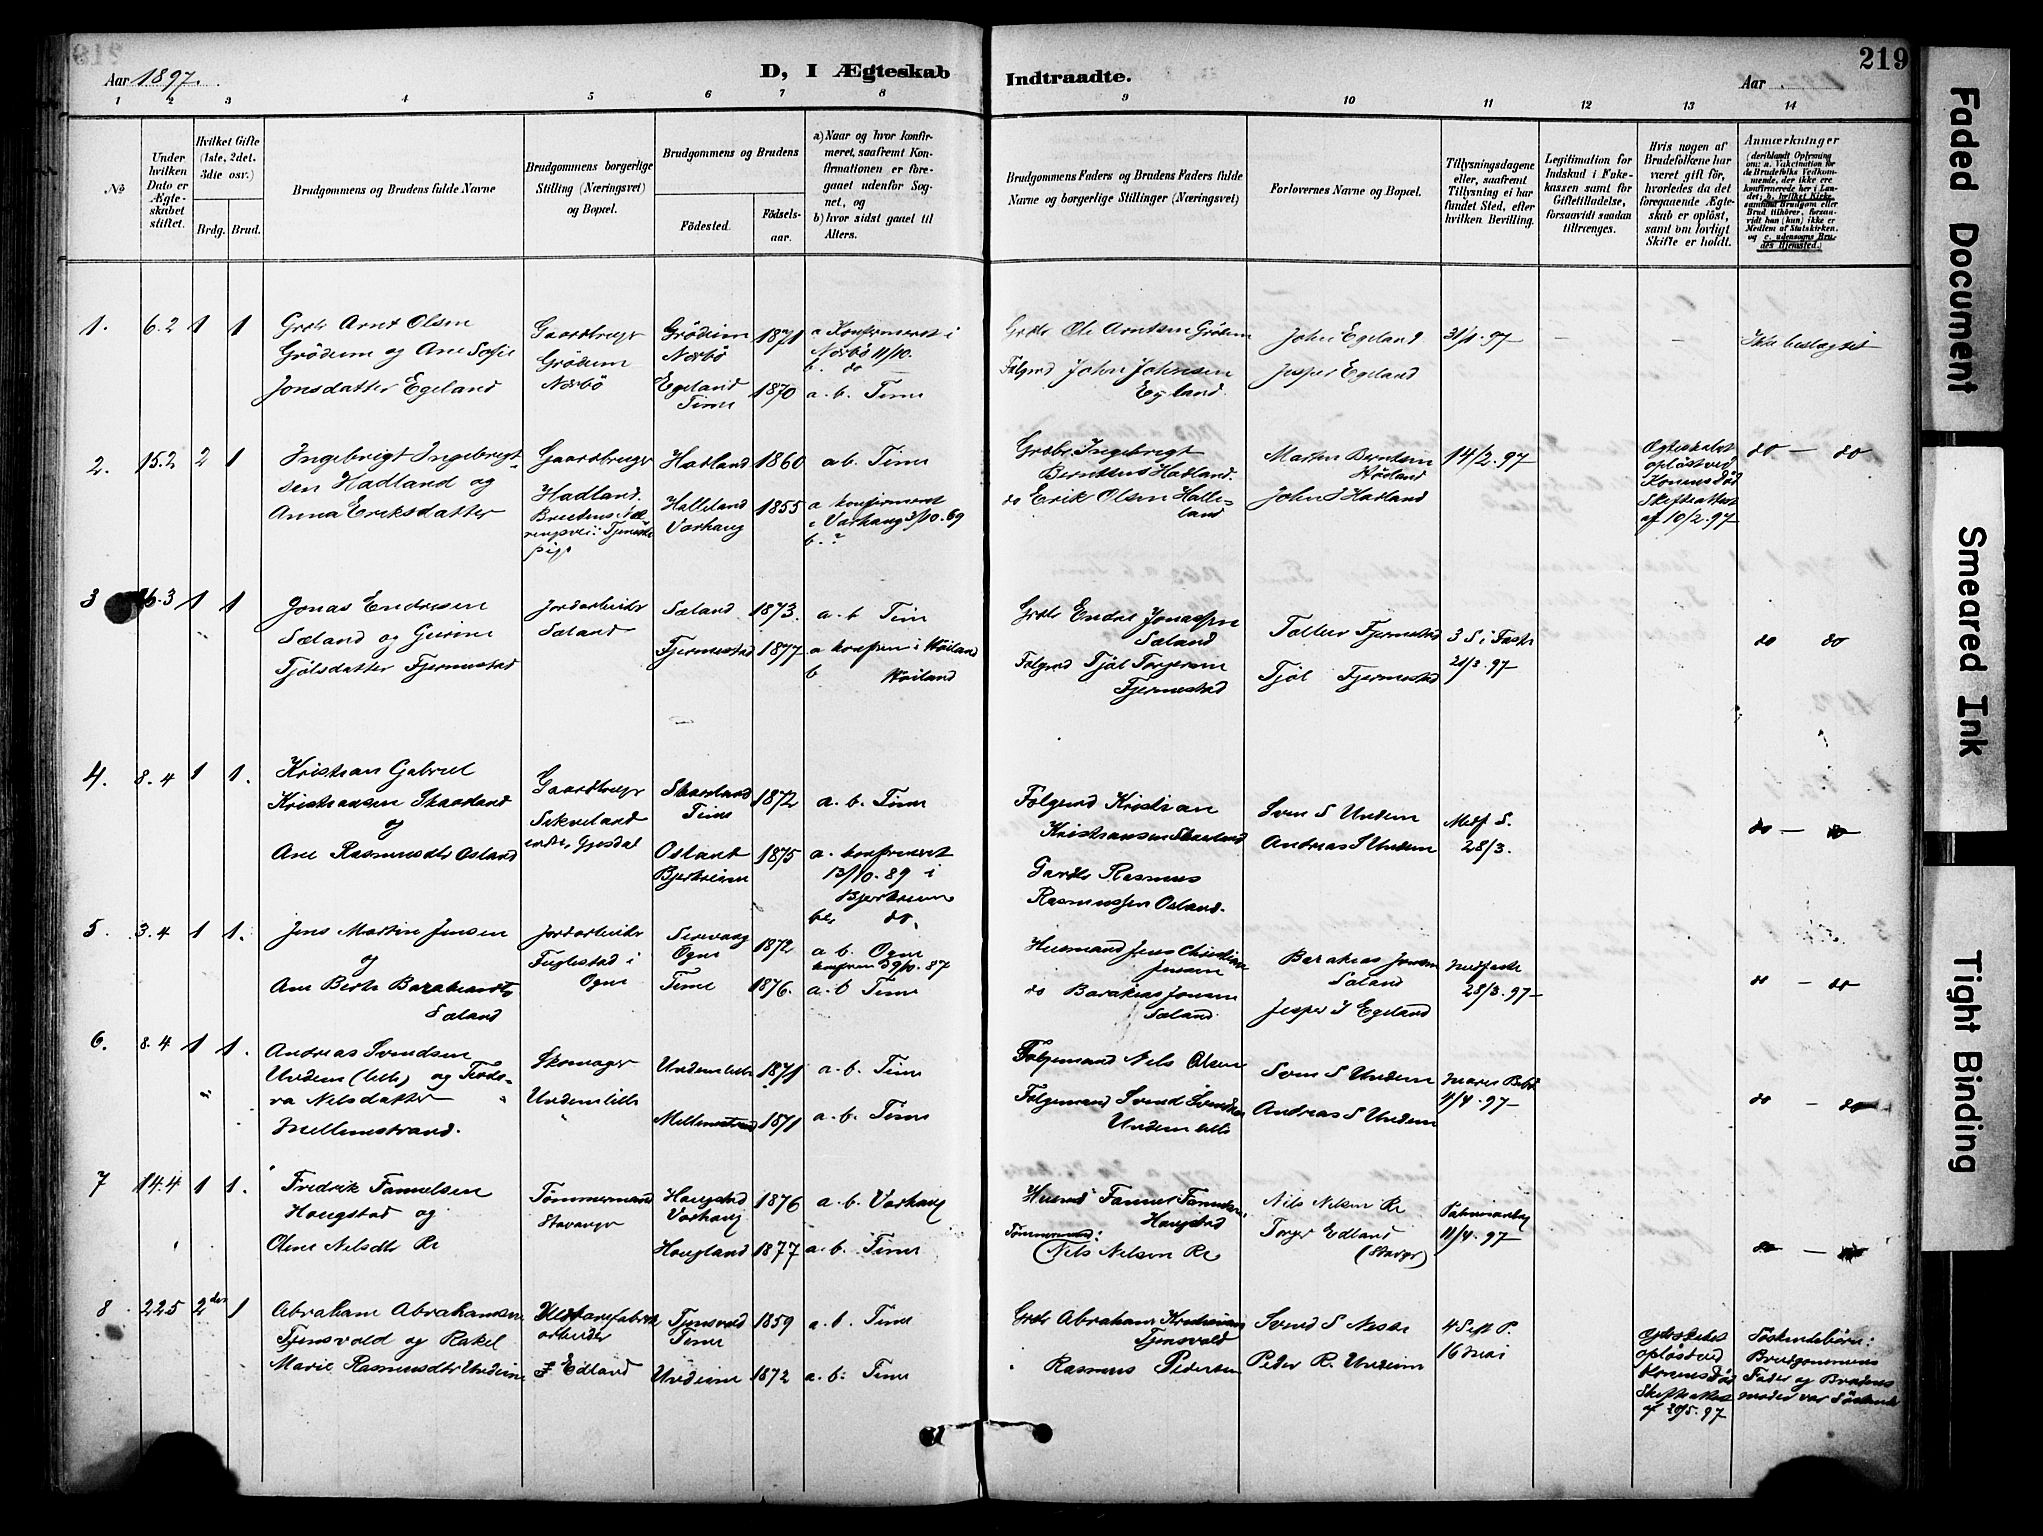 219
Aar 1897.
D, I Ægteskab Indtraadte.
Aar
1 2 3 4 5 6 7 8 9 10 11 12 13 14
No
Under hvilken Dato er Ægteskabet stiftet.
Hvilket Gifte (1ste, 2det, 3die osv.)
Brdg. Brud.
Brudgommens og Brudens fulde Navne
Brudgommens borgerlige Stilling (Næringsvei) og Bopæl.
Brudgommens og Brudens
Fødested.
Fødselsaar.
a) Naar og hvor konfirmeret, saafremt Konfirmationen er foregaaet udenfor Sognet, og
b) hvor sidst gaaet til Alters.
Brudgommens Faders og Brudens Faders fulde Navne og borgerlige Stillinger (Næringsvei)
Forlovernes Navne og Bopæl.
Tillysningsdagene eller, saafremt Tillysning ei har fundet Sted, efter hvilken Bevilling.
Legitimation for Indskud i Enkekassen samt for Giftetilladelse, forsaavidt saadan tiltrænges.
Hvis nogen af Brudefolkene har været gift før, hvorledes da det foregaaende Ægteskab er opløst, samt om lovligt Skifte er holdt.
Anmærkninger
(deriblandt Oplysning om: a. Vakcination for de Brudefolks Vedkommende, der ikke ere konfirmerede her i Landet; b. hvilket Kirkesamfund Brudgom eller Brud tilhører, forsaavidt han (hun) ikke er Medlem af Statskirken, og c. udensogns Brudes Hjemsted.)
1. 6.2 1 1
Grdb Arnt Olsen
Grödem og Ane Sofie
Jonsdatter Egeland
Gaardbruger
Grödem
Norbö
Grödem
Norbö 1871
Egeland
Time 1870
a Konfirmeret i
Norbö 11/10.
b. do
a. b. Time
Grdb Ole Arntsen Grödem
Fölgmd John Johnsen
Egeland.
John Egeland
Jesper Egeland
31/1. 97
Ikke beslægtet
2. 15.2 2 1
Ingebrigt Ingebrigt-
sen Hadland og
Anna Eriksdatter
Gaardbruger
Hadland.
Hadland 1860
Halleland
Varhaug 1855
ab. Time
a konfirmeret
i Varhaug 3/10. 69
b. ?
Grdbr Ingebrigt
Berntsen Hadland.
do Erik Olsen Halle-
land
Marten Berntsen
Höiland
John I Hadland
14/2. 97
Ægteskabet
opløst ved
Konens Död
Skifteattest
af 10/2. 97
do — do
3 1 1
Jonas Endresen
Sæland og Gurine
Tjölsdatter Fjermestad
Jordarbeider
Sæland
Sæland 1873.
Fjermestad 1877
a. b Time
a konfirm i Höiland
b Höiland
Grdb Endre Jonassen
Sæland
Fölgmd Tjöl Torgersen
Fjermestad
Tollev Fjermestad
Tjöl Fjermestad
3 S i Faste
21/3. 97
do do
4. 8.4 1 1.
Kristian Gabriel
Kristiansen Skaarland
og
Ane Rasmusdtr Osland
Gaardbruger
Gjesdal
Skaarland
Time 1872
Osland
Bjerkreim 1875
a. b. Time
a. konfirmeret
13/10. 89 i
Bjerkreim
b do.
Fölgmd Kristian
Kristiansen Skaarland
Gaardb Rasmus
Rasmussen Osland.
Sven S Undem
Andreas S Undem
Midf S.
28/3.
do — do
5. 3.4 1 1.
Jens Martin Jensen
og
Ane Berta Barakiasdtr
Sæland
Jordarbeider
Fuglestad i
Ogne
Sirevaag
Ogne 1872
Time 1876.
a b. Ogne
a. b Time
Husmand Jens Christian
Jensen
do Barakias Jonsen
Sæland
Barakias Jonsen
Sæland
Jesper I Egeland
Midfaste
28/3. 97
do — do
6. 8.4 1 1.
Andreas Svendsen
Undem (lille) og Teodo-
ra Nilsdatter
Mellemstrand.
Skomager
Undem lille
Undem lille 1871
Mellemstrand 1871
a. b. Time
a. b. Time
Fölgemand Nils Olsen
Fölgemand Svend Svendsen
Undem lille
Sven S Undem
Andreas S Undem
Mariæ Beb.
4/4. 97
do — do
7 14.4 1 1.
Fredrik Tønnesen
Haugstad og
Oline Nilsdtr Re
Tømmermand
Stavanger
Haugstad
Varhaug 1876
Haugland 1877
a. b. Varhaug
a. b. Time
Haugstad
Tømmermand:
Nils Nilsen Re
Nils Nilsen Re
Torger Edland
(Stavgr)
Palmesøndag
11/4. 97
do —
8 22 5 2den 1
Abraham Abrahamsen
Tjensvold og Rakel
Marie Rasmusdtr Undeim
Uldvarefabrik
arbeider
Edland
Tjensvold
Time 1859
Undeim 1872
a. b. Time
a. b: Time
Grdb Abraham Kristiansen
Tjensvold
" Rasmus Pedersen
Svend S Nesse
Peder R. Undeim
4 S eft P.
16 mai
Ægteskabet
opløst ved
Konens Död
Skifteattest
af 20/5. 97
Søskendebörn:
Brudgommens
Fader og Brudens
moder var Søskende
Faded Document
Smeared Ink
Tight Binding